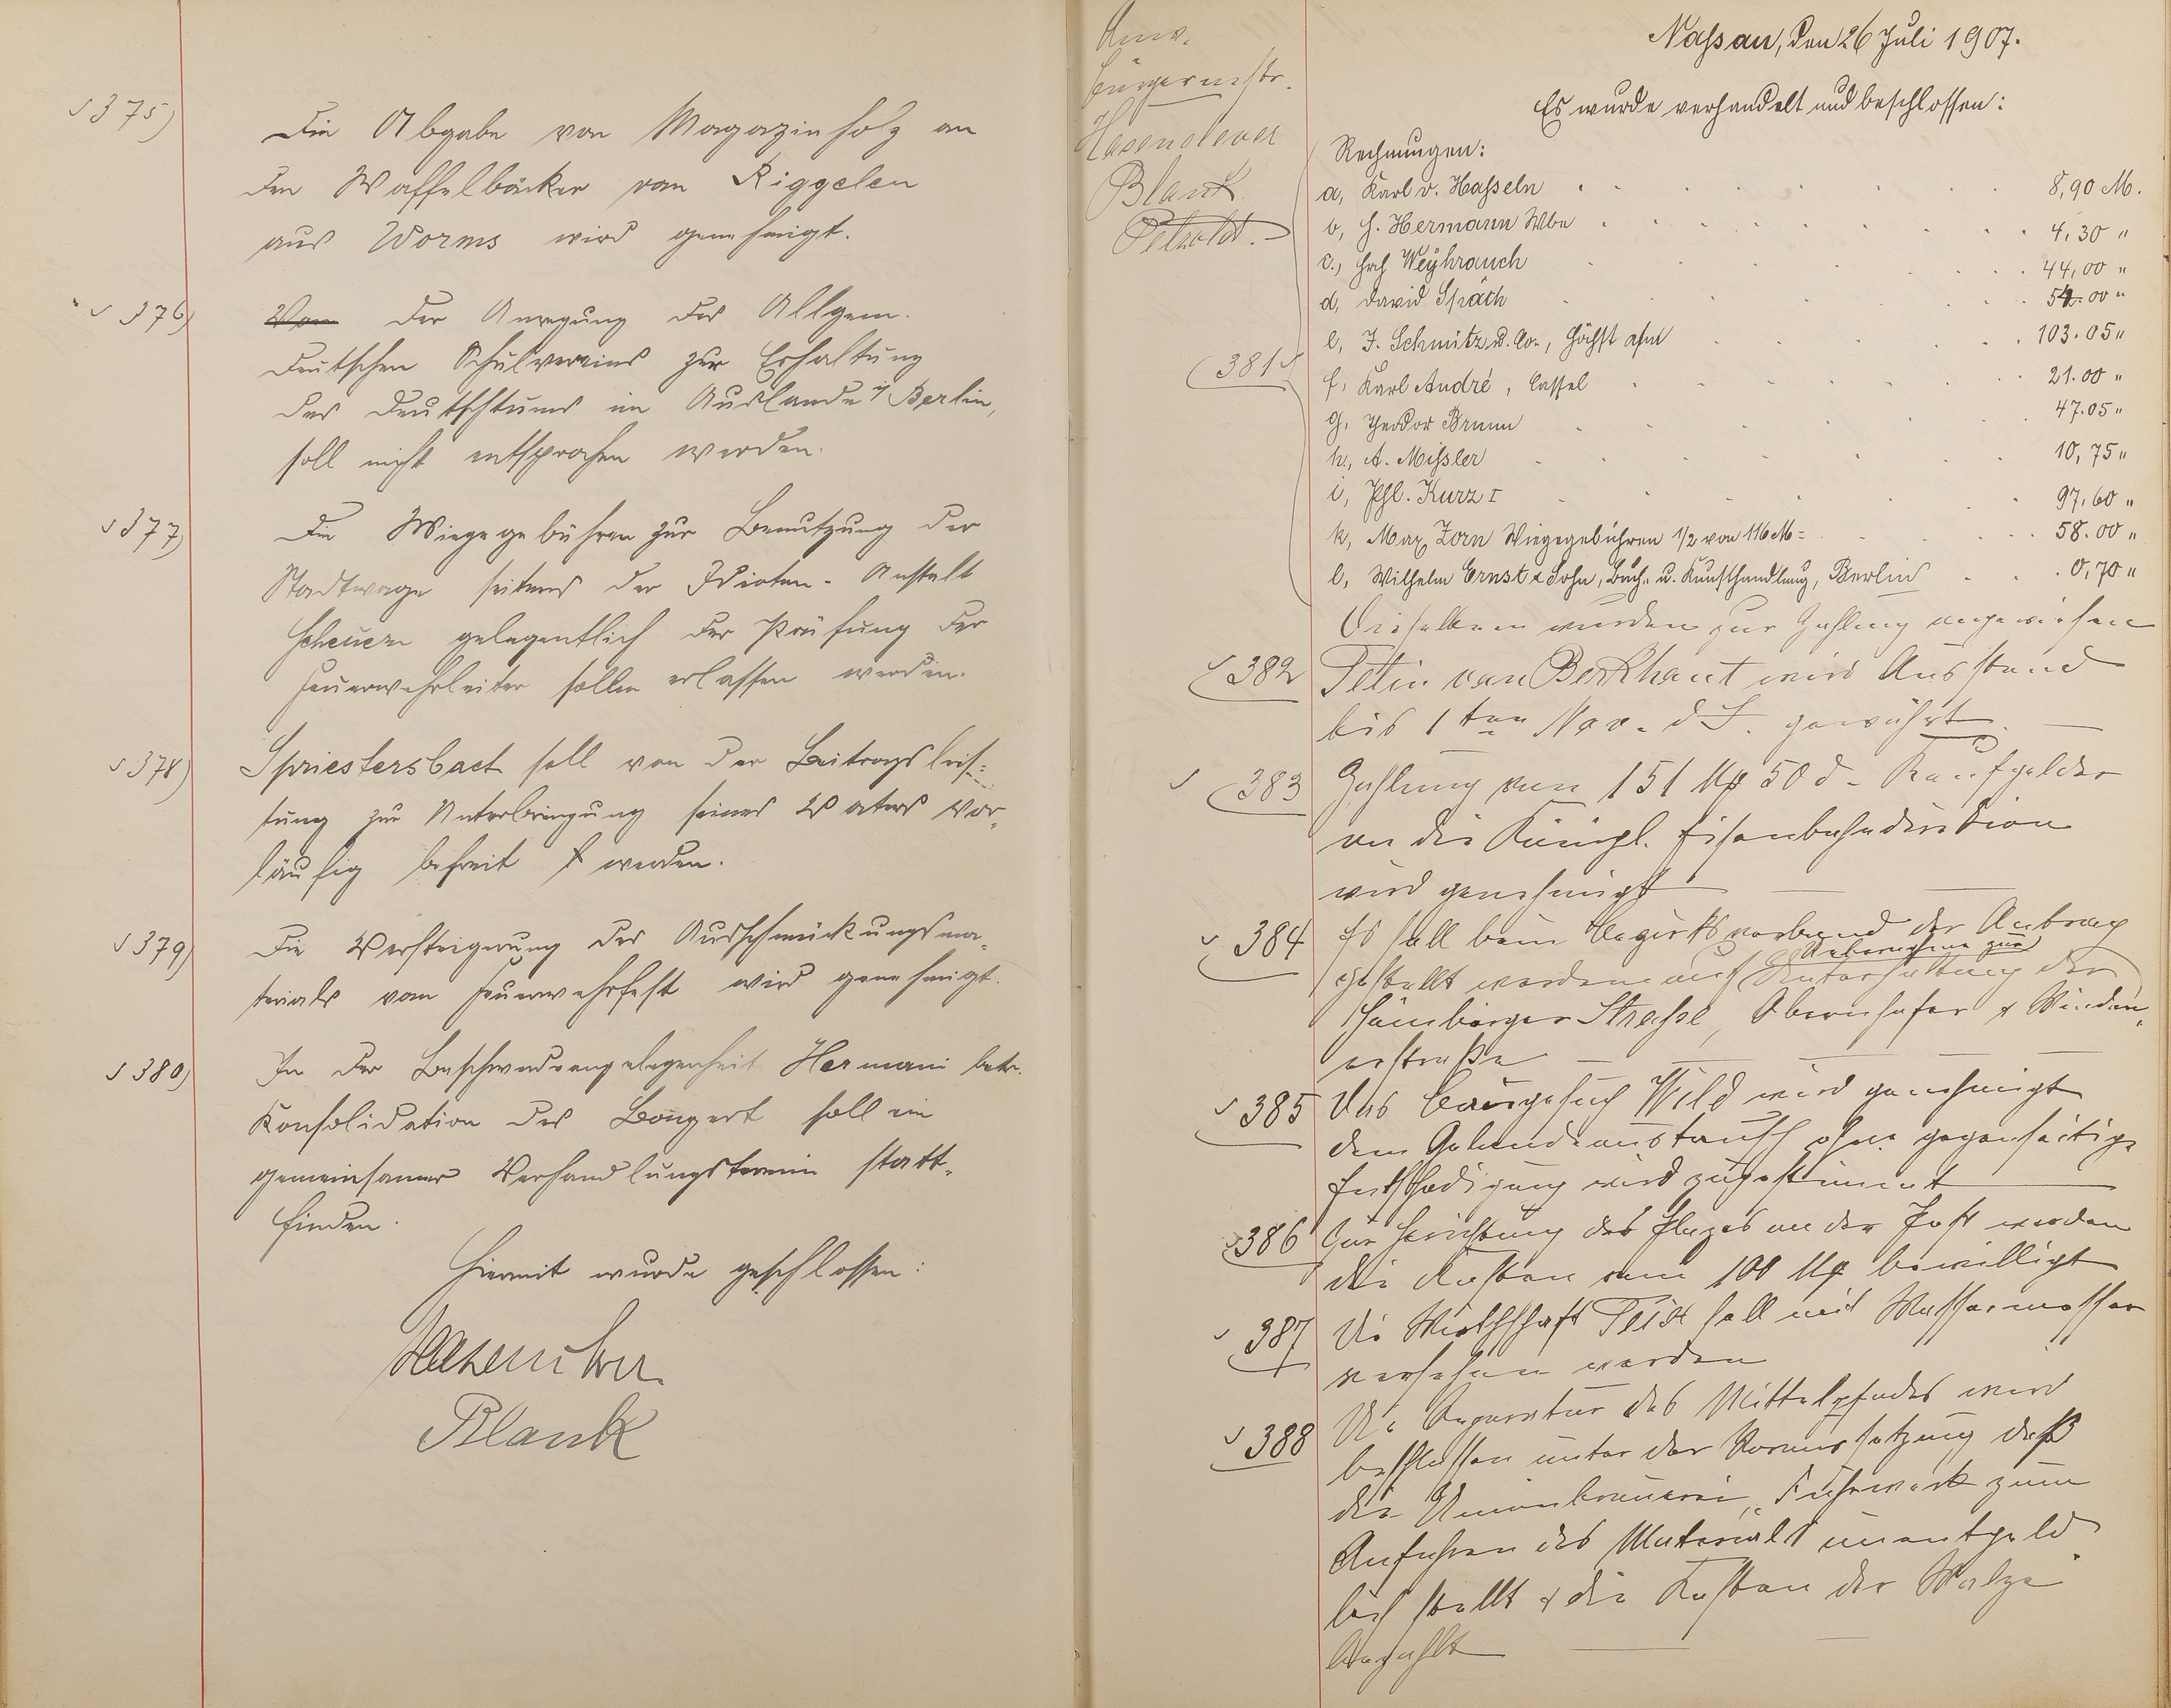 375)
Die Abgabe von Magazinholz an
den Waffelbäcker van Riggelen
aus Worms wird genehmigt.
376)
Von Der Anregung des Allgem.
Deutschen Schulvereins zur Erhaltung
des Deutschtums im Auslande ij Berlin,
soll nicht entsprochen werden.
377)
Die Wiegegebühren zur Benutzung der
Stadtwage seitens der Idioten-Anstalt
Scheuern gelegentlich der Prüfung der
Feuerwehrleiter sollen erlassen werden.
378)
Spriestersbach soll von der Beitragsleis-
tung zur Unterbringung seines Vaters vor-
läufig befreit werden.
379)
Die Versteigerung des Ausschmückungsma-
terials vom Feuerwehrfest wird genehmigt.
380)
In der Beschwerdeangelegenheit Hermani betr.
Konsolidation des Bongert soll ein
gemeinsamer Verhandlungstermin statt-
finden.
Hiermit wurde geschlossen:
Hasenclever
Blank
Anw.
Bürgermstr.
Hasenclever
Blank
Petzoldt.
Nassau, den 26 Juli 1907.
Es wurde verhandelt und beschlossen:
381
Rechnungen:
a, Karl v. Hasseln 8,90 M.
b, H. Hermann Wwe 4,30 "
c., Hrch Weyhrauch 44,00 "
d, David Späth 54.00 "
e, J. Schmitz u. Co., Höchst a/m 103.05 "
f, Karl André, Cassel 21.00 "
g, Theodor Brunn 47.05 "
h, A. Missler 10,75 "
i, Phl. Kurz I 97,60 "
k, Max Zorn Wiegegebühren 1/2 von 116 M = 58.00 "
l, Wilhelm Ernst & Sohn, Buch- u. Kunsthandlung, Berlin 0,70 "
Dieselben wurden zur Zahlung angewiesen
382
van Berkhaut wird Ausstand
bis 1ten Nov. d J. gewährt
383
Zahlung von 151 M 50 d. Kaufgelder
an die Königl. Eisenbahndirektion
wird genehmigt
384
Es soll beim Bezirksverband der Antrag
gestellt werden auf Uebernahme zur Unterhaltung der
Hömberger Strasse, Obernhofer & Winden-
erstraße
385
Das Baugesuch Wild wird genehmigt
dem Geländeaustausch ohne gegenseitige
Entschädigung wird zugestimmt
386
Zur Herrichtung des Plazes an der Post werden
die Kosten von 100 M bewilligt
387
Die Wirthschaft soll mit Wassermesser
versehen werden
388
Die Reparatur des Mittelpfades wird
beschlossen unter der Voraussetzung daß
die Unionbrauerei, Fuhrwerk zum
Anfahren des Materials unentgeld
lich stellt & die Kosten der Walze
bezahlt